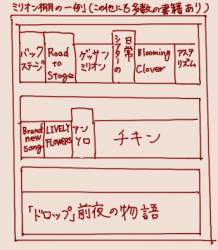 ミリオン棚の一例(この他にも多数の書籍あり)
バックステージ
Road to Stage
ゲッサン ミリオン
シアターの日常
Blooming Clover
アステリズム
Brand new song
LIVELY FLOWERS
アンソロ
チキン
「ドロップ」前夜の物語